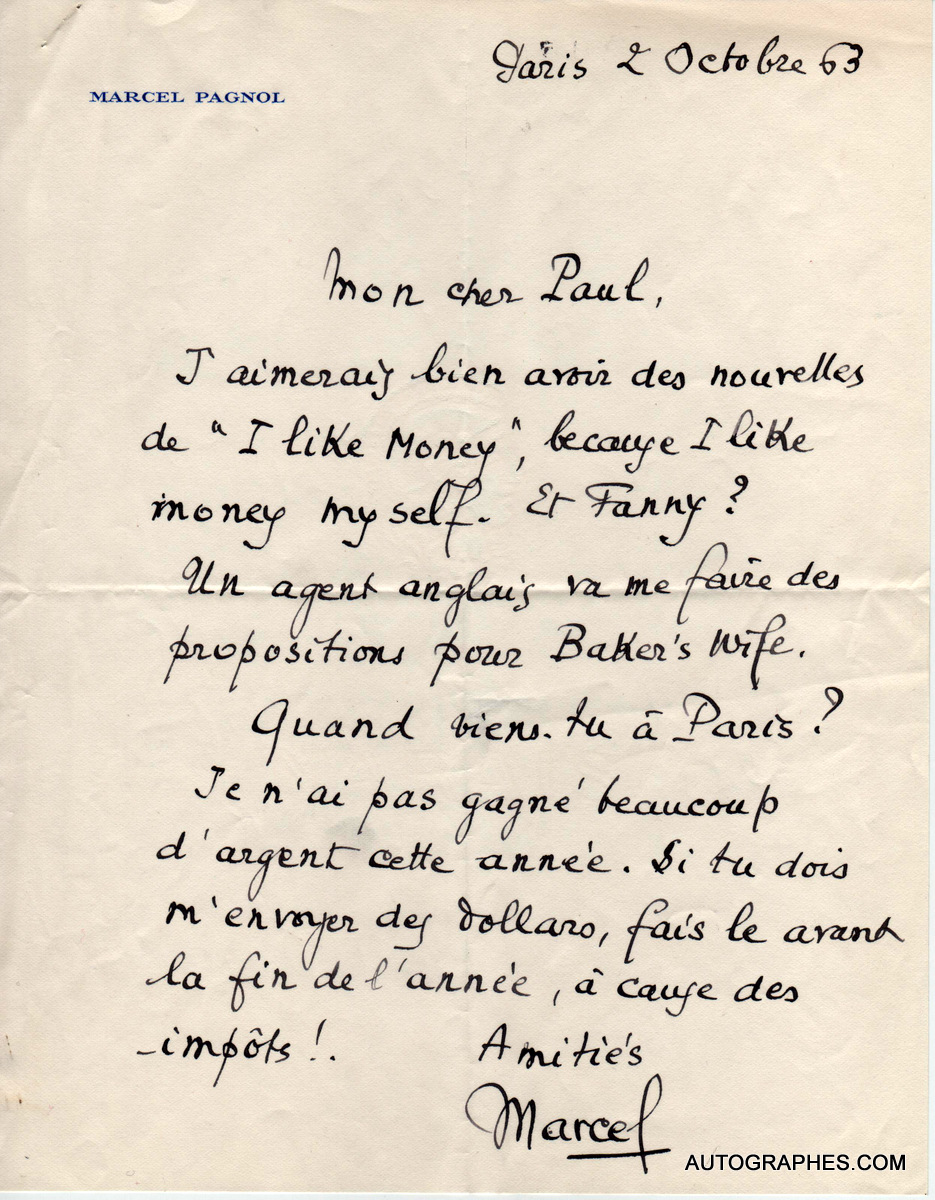 Paris 2 Octobre 63
MARCEL PAGNOL
Mon cher Paul,
J'aimerais bien avoir des nouvelles
de "I like Money", because I like
money myself. Et Fanny?
Un agent anglais va me faire des
propositions pour Baker's Wife.
Quand viens-tu à Paris?
Je n'ai pas gagné beaucoup
d'argent cette année. Si tu dois
m'envoyer des dollars, fais le avant
la fin de l'année, à cause des
impôts!.
Amitiés
Marcel
AUTOGRAPHES.COM